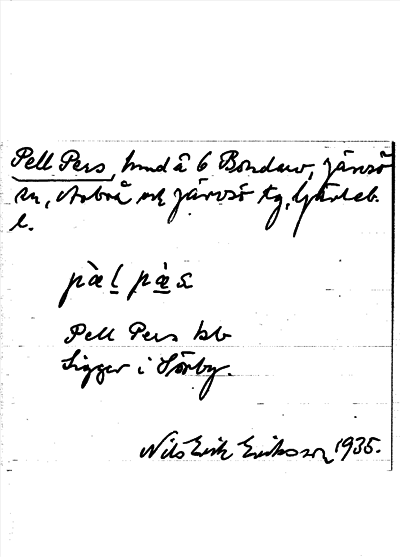 Pell Pers, hmd å 6 Bondarv, Järvsö
sn, Arbrå ock Järvsö tg, Gävleb.
l.
pæ̀l pæ̀ș
Pell Pers hb
Ligger i Sörby.
Nils Erik Eriksson 1935.